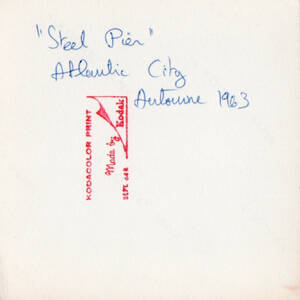 "Steel Pier"
Atlantic City
Automne 1963
KODACOLOR PRINT
Made by
Kodak